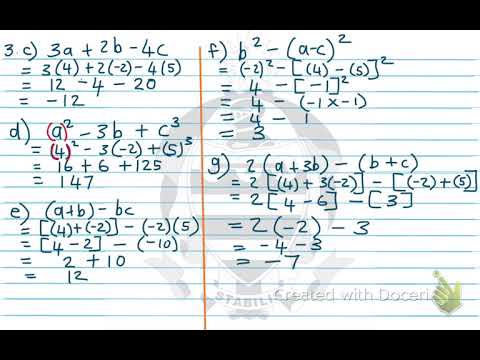 3. c) 3a + 2b - 4c
= 3(4) + 2(-2) - 4(5)
= 12 - 4 - 20
= -12
d) (a)² - 3b + c³
= (4)² - 3(-2) + (5)³
= 16 + 6 + 125
= 147
e) (a+b) - bc
= [(4)+(-2)] - (-2)(5)
= [4-2] - (-10)
= 2 + 10
= 12
f) b² - (a-c)²
= (-2)² - [(4) - (5)]²
= 4 - [-1]²
= 4 - (-1 x -1)
= 4 - 1
= 3
g) 2(a+3b) - (b+c)
= 2[(4) + 3(-2)] - [(-2)+(5)]
= 2[4-6] - [3]
= 2(-2) - 3
= -4-3
= -7
STABILI
Created with Doceri